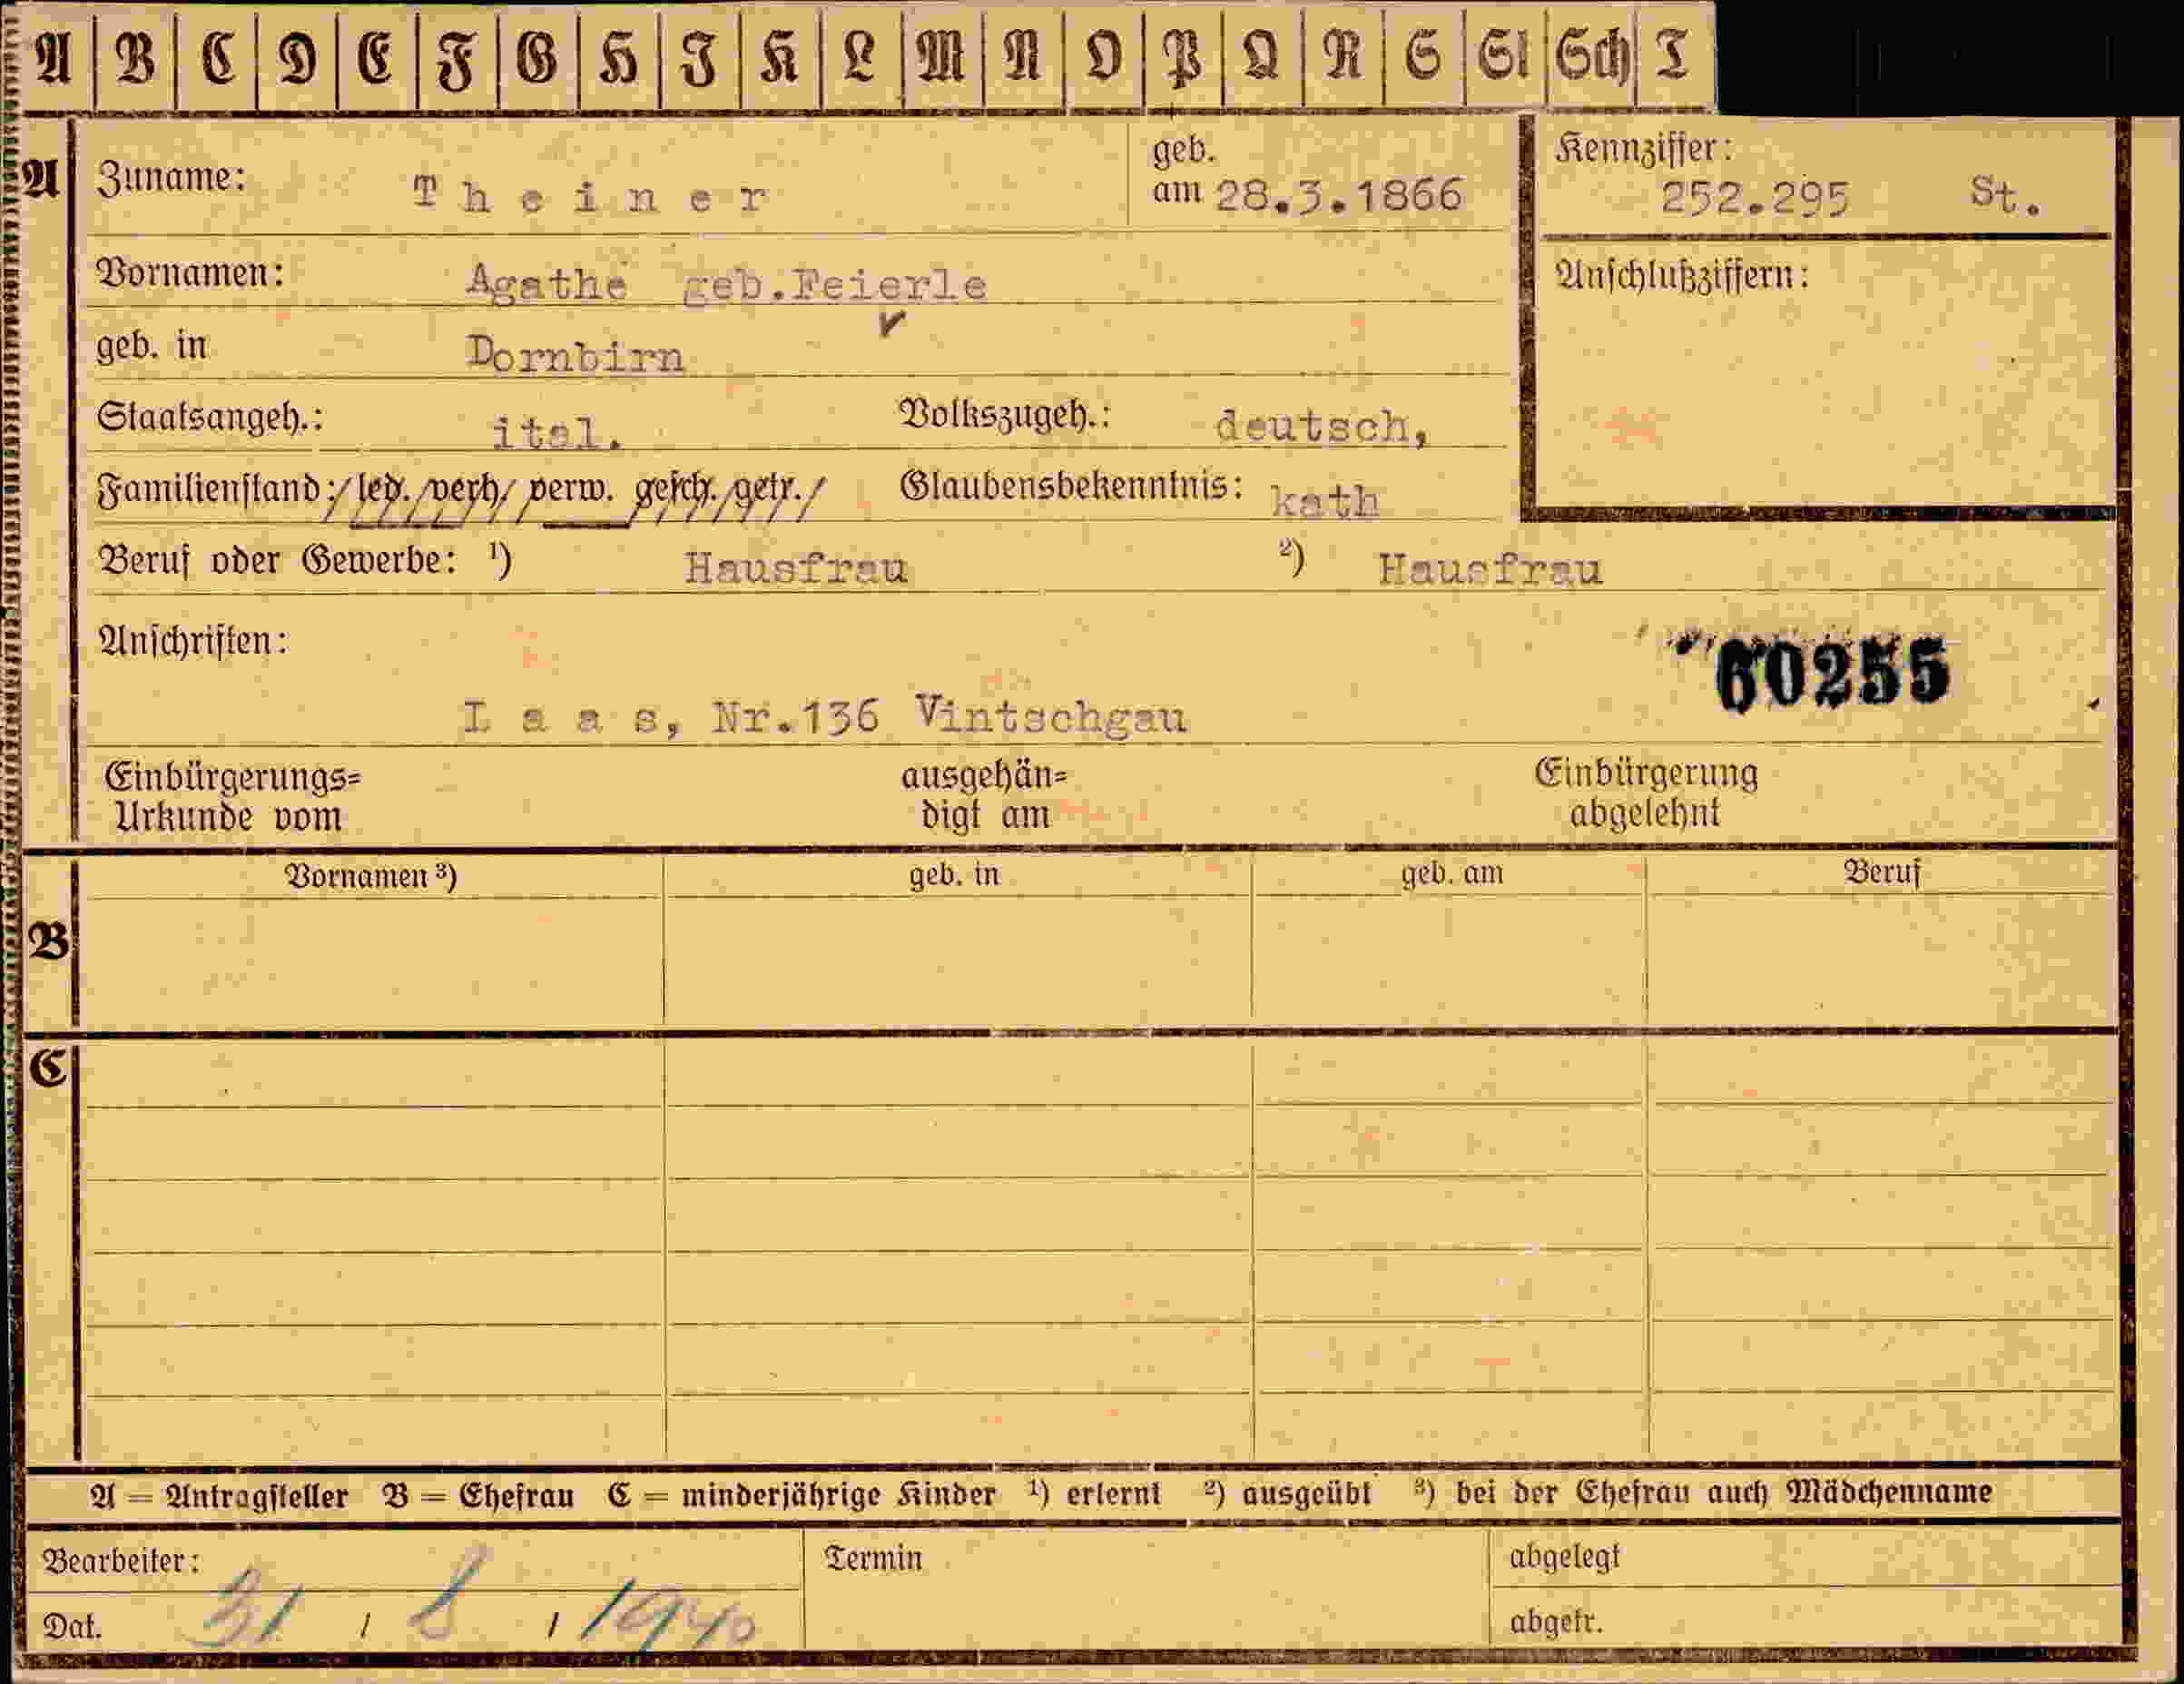 A B C D E F G H I K L M N O P Q R S St Sch T
A Zuname: Theiner geb. am 28.3.1866 Kennziffer: 252.295 St.
Vornamen: Agathe geb.Feierle Anschlußziffern:
geb. in Dornbirn
Staatsangeh.: ital. Volkszugeh.: deutsch,
Familienstand: led. verh. verw. gesch. getr. Glaubensbekenntnis: kath
Beruf oder Gewerbe: ¹) Hausfrau ²) Hausfrau
Anschriften: 60255
Laas, Nr.136 Vintschgau
Einbürgerungs= ausgehän= Einbürgerung
Urkunde vom digt am abgelehnt
Vornamen ³) geb. in geb. am Beruf
B
C
A = Antragsteller B = Ehefrau C = minderjährige Kinder ¹) erlernt ²) ausgeübt ³) bei der Ehefrau auch Mädchenname
Bearbeiter: Termin abgelegt
Dat. 31 / 8 / 1940 abgetr.